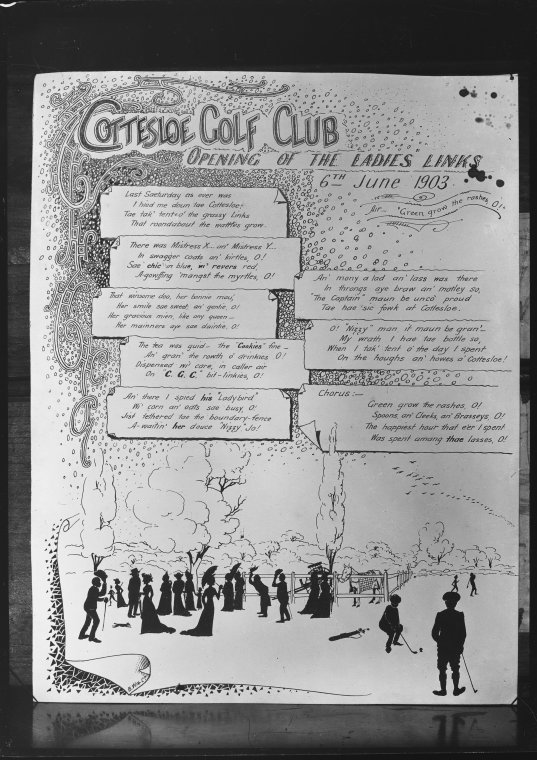 COTTESLOE GOLF CLUB
OPENING OF THE LADIES LINKS
6TH June 1903
Air — "Green grow the rashes, O!"
Last Saeturday as ever was
I hied me doun tae Cottesloe;
Tae tak' tent o' the grassy links
That roundabout the wattles grow.
There was Mistress X... an' Mistress Y...
In swagger coats an' kirtles, O!
Sae chic in blue, wi' revers red,
A-gowfing 'mangst the myrtles, O!
That winsome doo, her bonnie mou',
Her smile sae sweet an' gentle, O!
Her gracious mien, like ony queen —
Her mainners aye sae daintie, O!
The tea was guid — the "Cookies" fine —
An' gran' the rowth o' drinkies, O!
Dispensed wi' care, in caller air
On "C. G. C." bit-linkies, O!
An' there I spied his "Ladybird"
Wi' corn an' oats sae busy, O!
Jist tethered tae the boundary-fence
A-waitin' her douce "Nizzy" Jo!
An' mony a lad an' lass was there
In throngs aye braw an' motley so,
"The Captain" maun be unco' proud
Tae hae sic fowk at Cottesloe.
O! "Nizzy" man, it maun be gran' —
My wrath I hae tae bottle so,
When I tak' tent o' the day I spent
On the houghs an' howes o' Cottesloe!
Chorus :—
Green grow the rashes, O!
Spoons, an' Cleeks, an' Brasseys, O!
The happiest hour that e'er I spent
Was spent amang thae lasses, O!